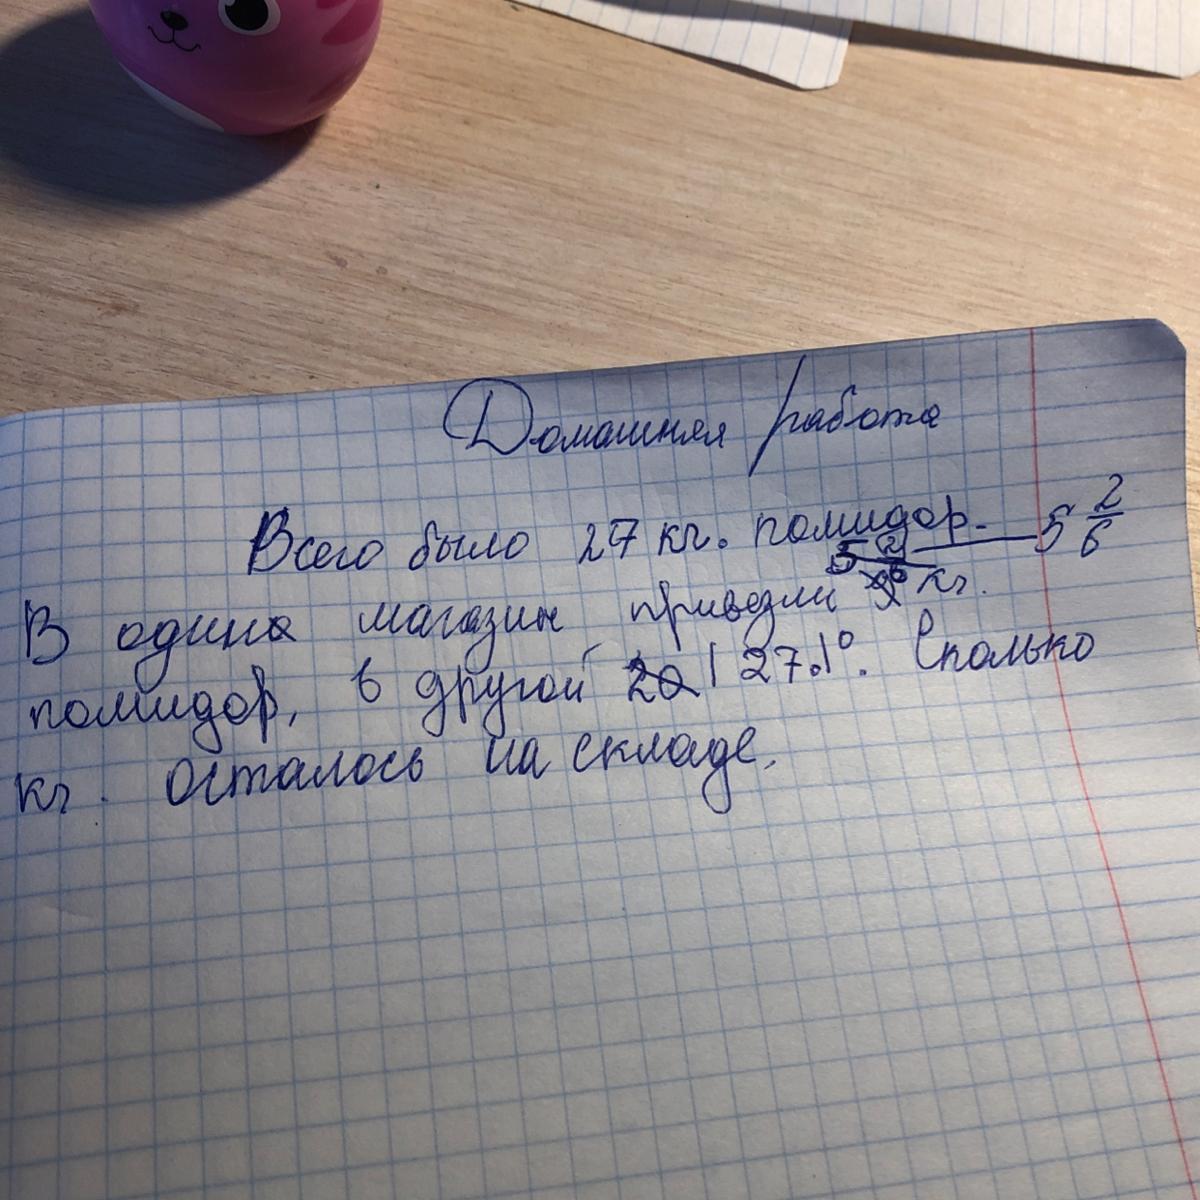 Домашняя работа
Всего было 27 кг. помидор. 5 2/6
В одина магазин привезли кг.
помидор, в другой Сколько
кг. осталось на складе.